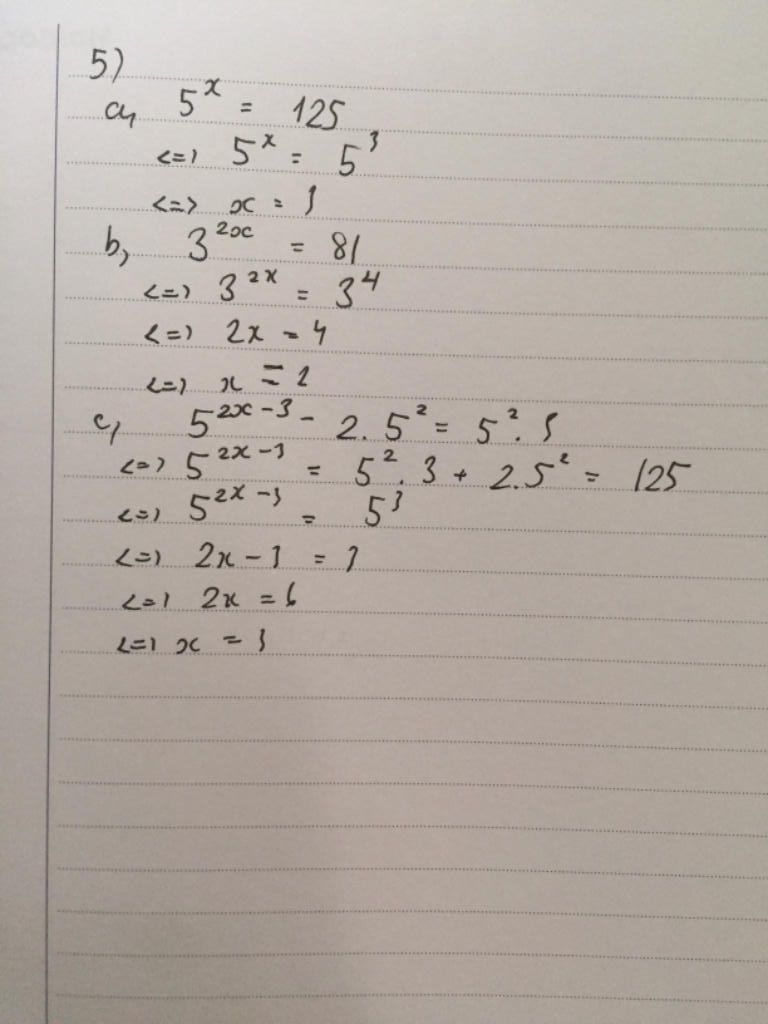 5)
a, 5^x = 125
<=> 5^x = 5^3
<=> x = 3
b, 3^2x = 81
<=> 3^2x = 3^4
<=> 2x = 4
<=> x = 2
c, 5^2x-3 - 2.5^2 = 5^2.3
<=> 5^2x-3 = 5^2.3 + 2.5^2 = 125
<=> 5^2x-3 = 5^3
<=> 2x-3 = 3
<=> 2x = 6
<=> x = 3